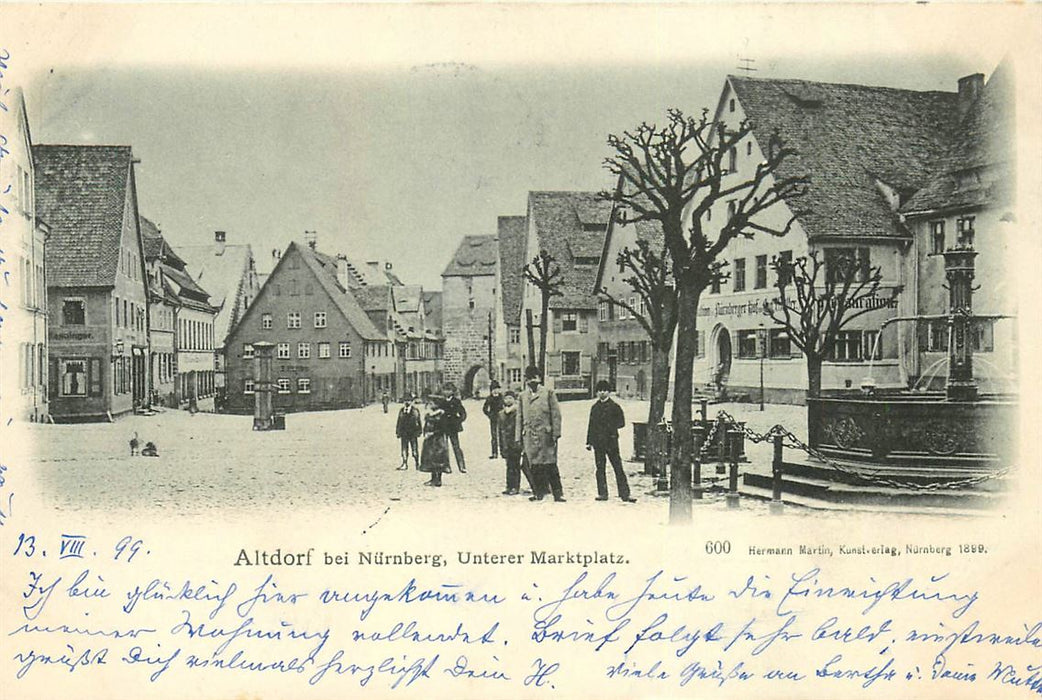 Nürnberger Hof
Restauration
13. VIII. 99.
Altdorf bei Nürnberg, Unterer Marktplatz.
600 Hermann Martin, Kunstverlag, Nürnberg 1899.
Ich bin glücklich hier angekom̅en u. habe heute die Einrichtung
meiner Wohnung vollendet. Brief folgt sehr bald, einstweilen
grüßt Dich vielmals herzlichst Dein H. Viele Grüße an Bertha u. Deine Mutter